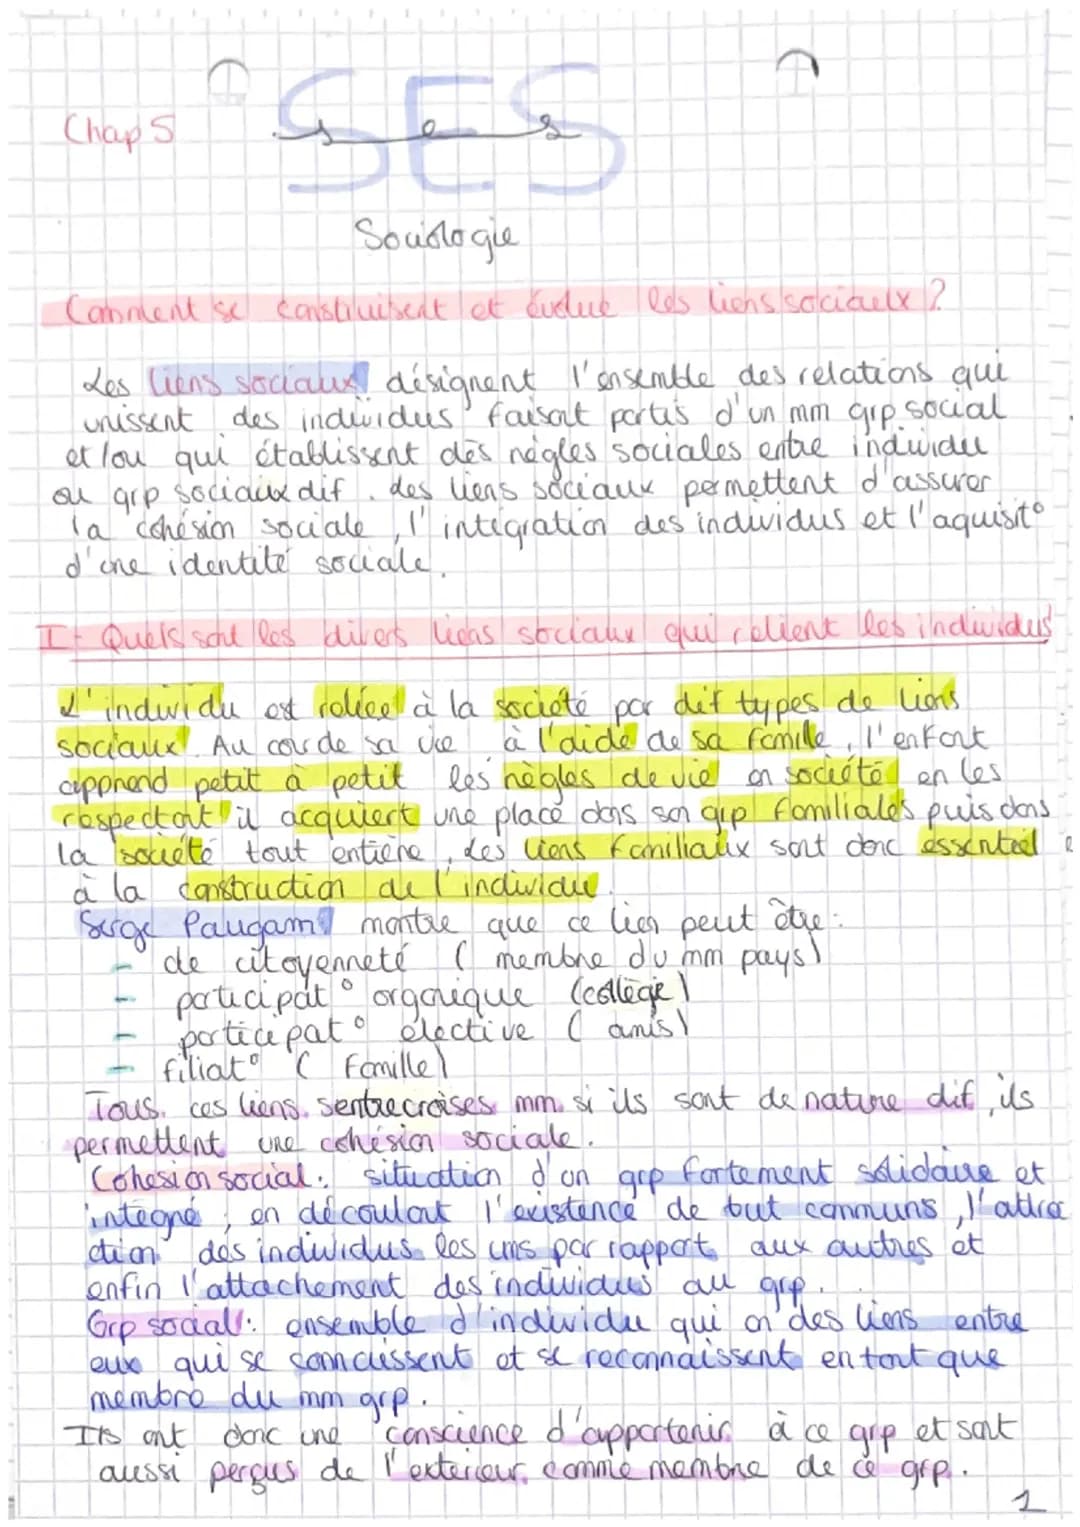 Chap 5
SES
ses
Sociologie
Comment se construisent et évolue les liens sociaux ?
Les liens sociaux désignent l'ensemble des relations qui
unissent des individus faisant partis d'un mm grp social
et/ou qui établissent des règles sociales entre individu
ou grp sociaux dif. des liens sociaux permettent d'assurer
la cohésion sociale, l'intégration des individus et l'aquisit°
d'une identité sociale.
I- Quels sont les divers liens sociaux qui relient les individus
L'individu est reliée à la société par dif types de liens
sociaux. Au cour de sa vie à l'aide de sa famille, l'enfant
apprend petit à petit les règles de vie en société en les
respectant il acquiert une place dans son grp familiales puis dans
la société tout entière, des liens familiaux sont donc essentiel
à la construction de l'individu.
Serge Paugam montre que ce lien peut être :
- de citoyenneté ( membre du mm pays )
- participat° organique (collège )
- participat° élective ( amis )
- filiat° ( famille )
Tous ces liens s'entrecroises mm si ils sont de nature dif, ils
permettent une cohésion sociale.
Cohesion social : situation d'un grp fortement solidaire et
intégré, en découlant l'existence de but communs, l'attra
ction des individus les uns par rapport aux autres et
enfin l'attachement des individus au grp.
Grp social : ensemble d'individu qui on des liens entre
eux qui se connaissent et se reconnaissent en tant que
membre du mm grp.
Ils ont donc une conscience d'appartenir à ce grp et sont
aussi perçus de l'exterieur comme membre de ce grp.
1